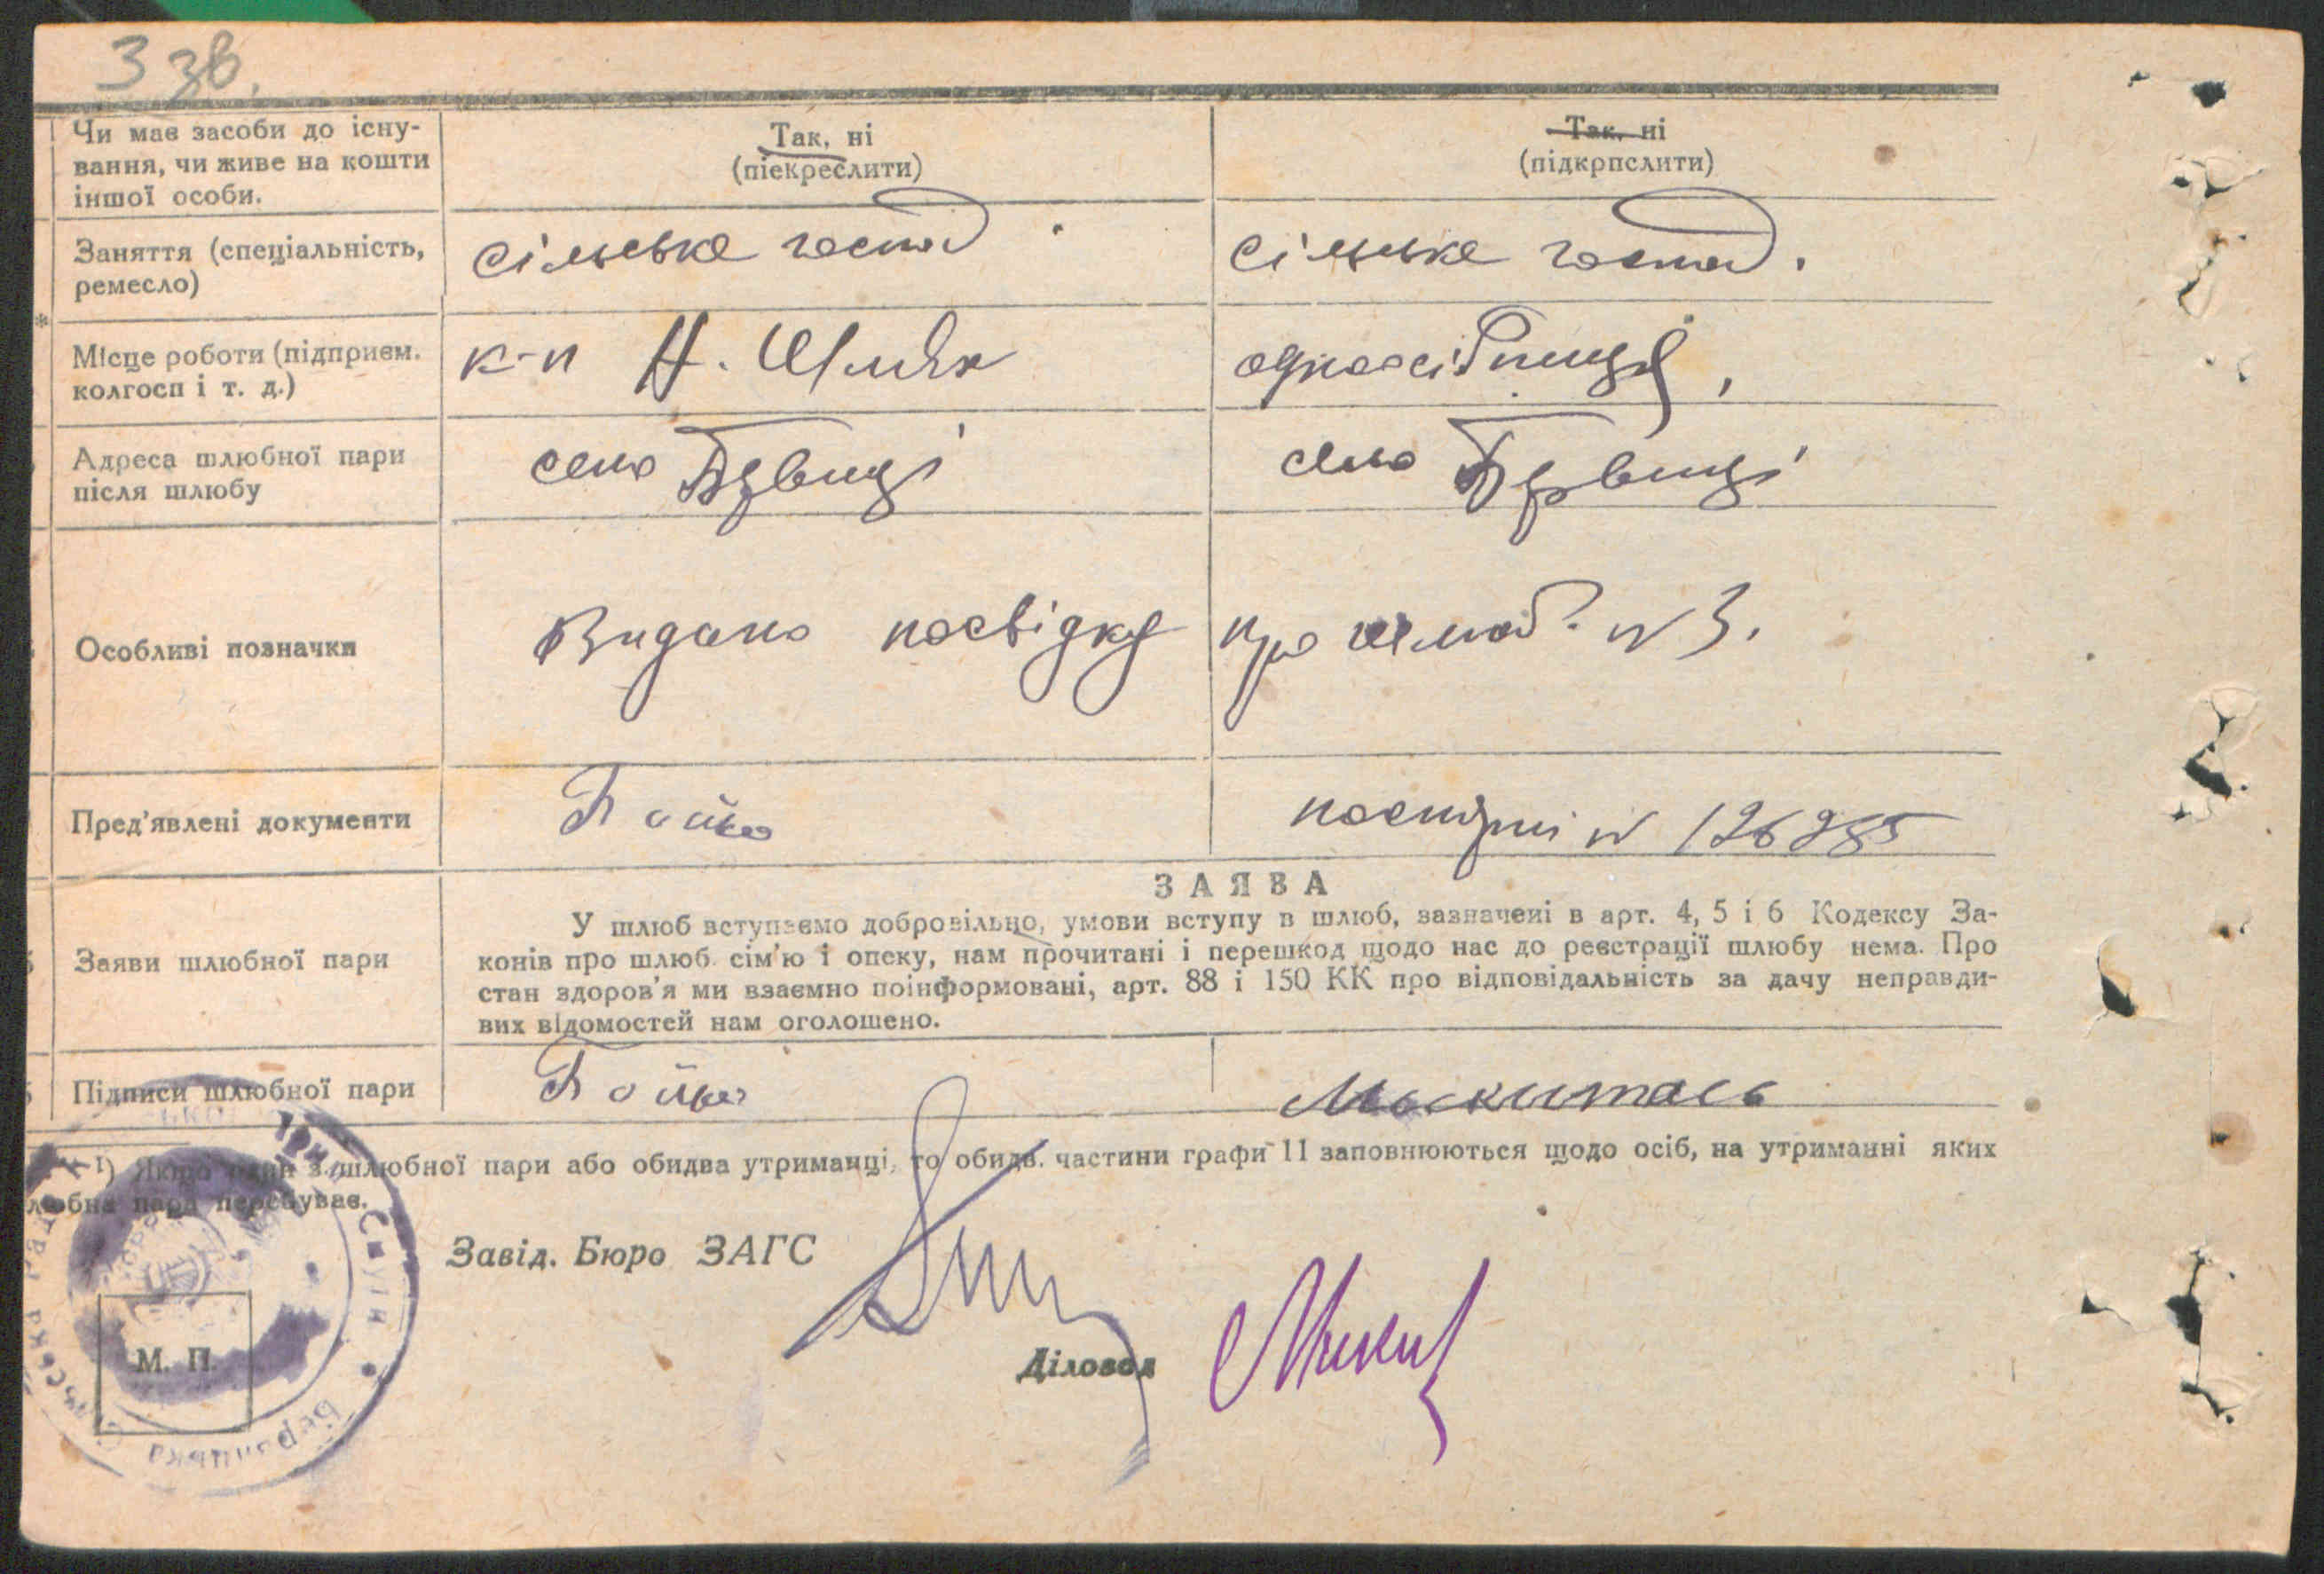 3 зв.
Чи має засоби до існу-
вання, чи живе на кошти
іншої особи.
Так, ні
(піекреслити)
Так, ні
(підкрпслити)
Заняття (спеціальність,
ремесло)
сільське господ
сільське господ.
Місце роботи (підприєм.
колгосп і т. д.)
к-п Н. Шлях
одноосібниця,
Адреса шлюбної пари
після шлюбу
село
село
Особливі позначки
Видано посвідку про шлюб. № 3.
Пред'явлені документи
Бойко
паспорт № 126285
ЗАЯВА
Заяви шлюбної пари
У шлюб вступаємо добровільно, умови вступу в шлюб, зазначені в арт. 4, 5 і 6 Кодексу За-
конів про шлюб. сім'ю і опеку, нам прочитані і перешкод щодо нас до реєстрації шлюбу нема. Про
стан здоров'я ми взаємно поінформовані, арт. 88 і 150 КК про відповідальність за дачу неправди-
вих відомостей нам оголошено.
Підписи шлюбної пари
Бойко
Мыкитась
¹) Якщо один з шлюбної пари або обидва утриманці, то обидв. частини графи 11 заповнюються щодо осіб, на утриманні яких
любна пара перебуває.
Завід. Бюро ЗАГС
Діловод
М. П.